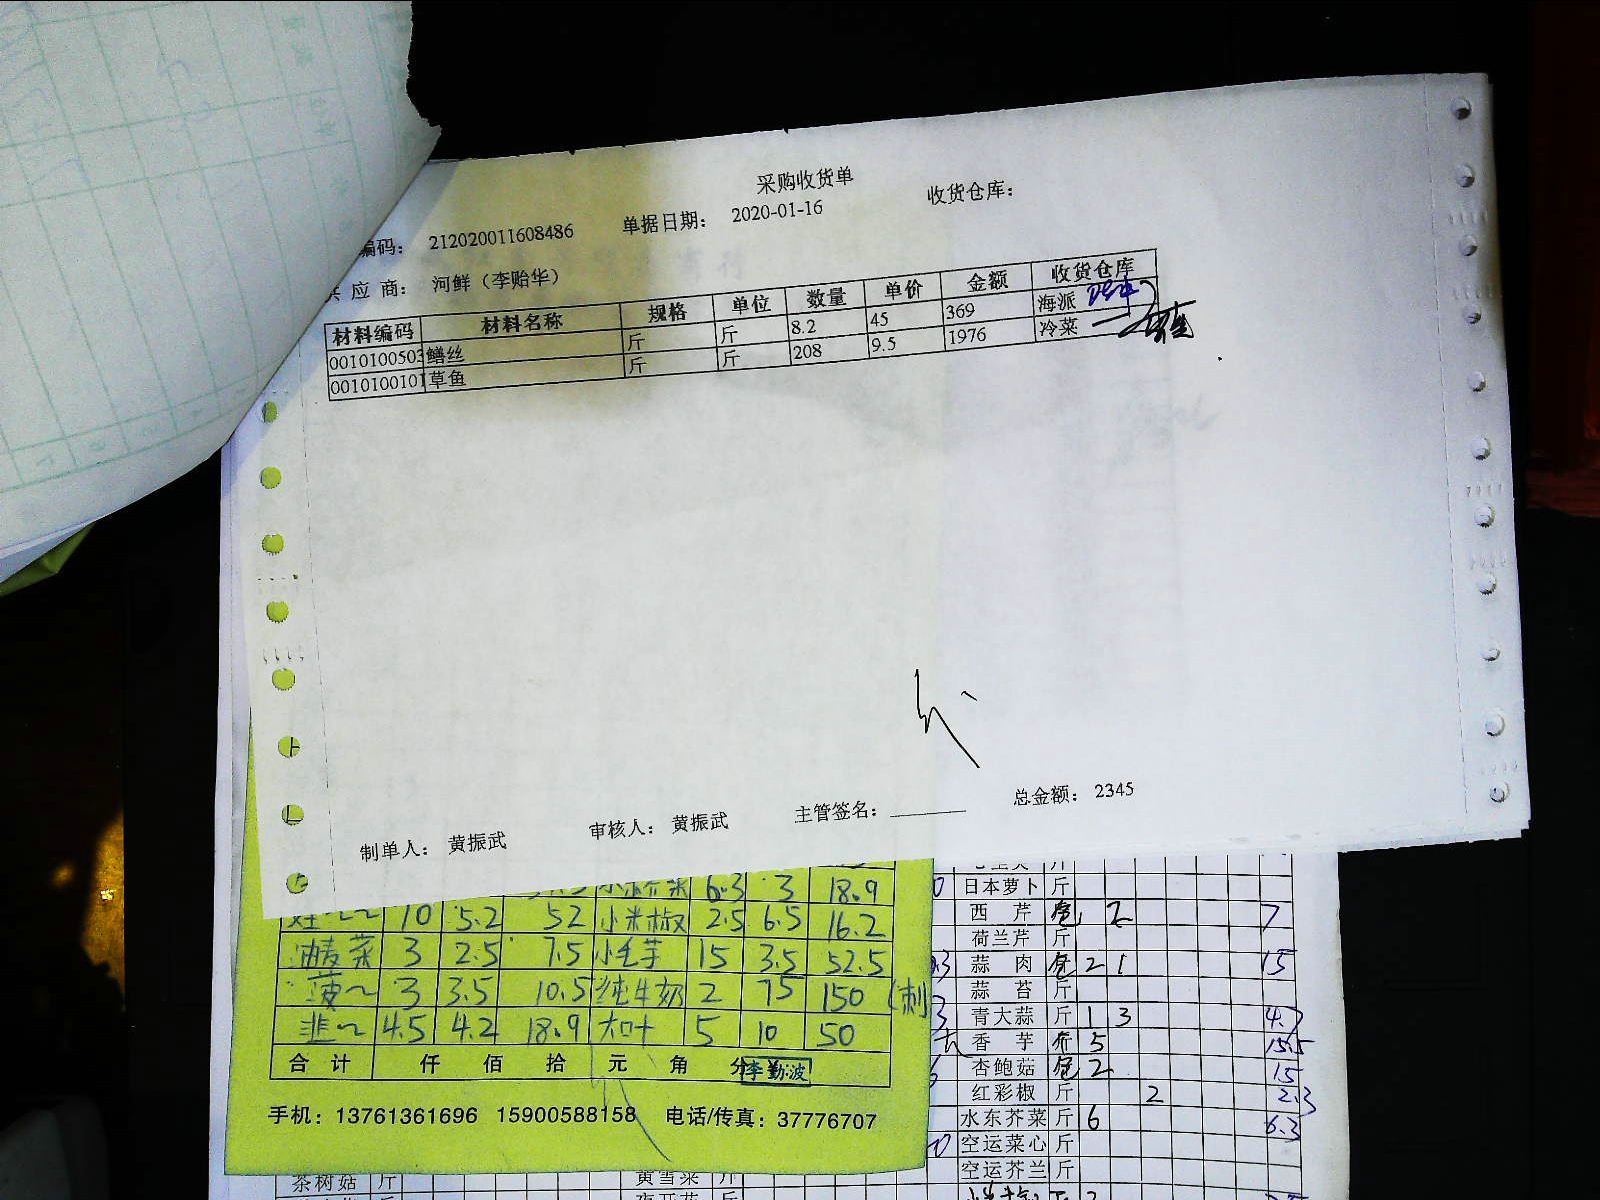 采购收货单
编码： 212020011608486 单据日期： 2020-01-16 收货仓库：
应 商： 河鲜（李贻华）
材料编码 材料名称 规格 单位 数量 单价 金额 收货仓库
0010100503 鳝丝 斤 斤 8.2 45 369 海派
0010100101 草鱼 斤 斤 208 9.5 1976 冷菜
制单人： 黄振武 审核人： 黄振武 主管签名： 总金额： 2345
6.3 3 18.9
10 5.2 52 小米椒 2.5 6.5 16.2
油麦菜 3 2.5 7.5 小毛芋 15 3.5 52.5
菠~ 3 3.5 10.5 纯牛奶 2 75 150
韭~ 4.5 4.2 18.9 5 10 50
合 计 仟 佰 拾 元 角 分
李勤波
手机：13761361696 15900588158 电话/传真：37776707
日本萝卜 斤
西 芹 2 7
荷兰芹 斤
蒜 肉 2 1 15
蒜 苔 斤
青大蒜 斤 1 3 4.7
香 芋 斤 5 15.5
杏鲍菇 2 15
红彩椒 斤 2 2.3
水东芥菜 斤 6 6.3
空运菜心 斤
空运芥兰 斤
茶树菇 斤 黄雪菜 斤